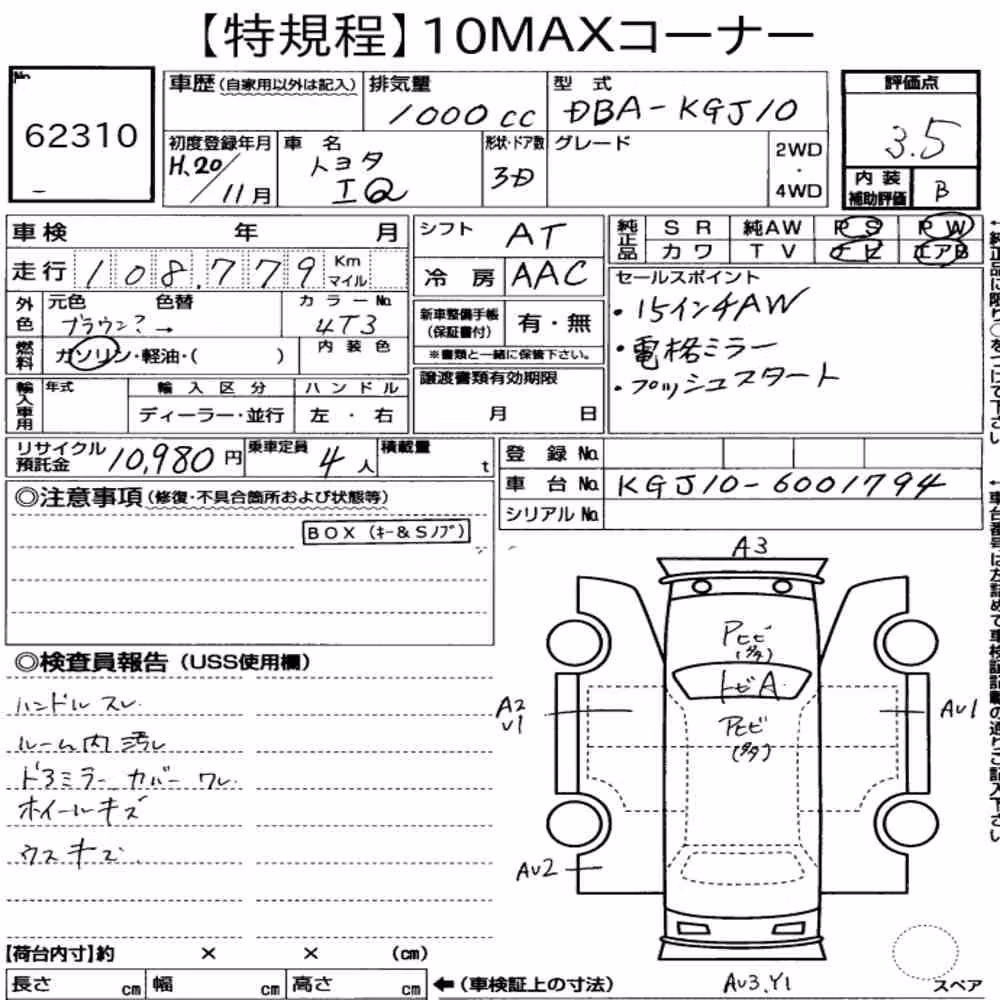 【特規程】10MAXコーナー
No.
62310
車歴(自家用以外は記入)
排気量
1000cc
型式
DBA-KGJ10
評価点
3.5
内装補助評価
B
初度登録年月
H.20/11月
車名
トヨタ
IQ
形状・ドア数
3D
グレード
2WD・4WD
車検 年 月
走行 108,779 Km マイル
外色
元色
ブラウン?→
色替
カラーNo.
4T3
燃料
ガソリン・軽油・( )
内装色
輸入車用
年式
輸入区分
ディーラー・並行
ハンドル
左・右
シフト
AT
冷房
AAC
新車整備手帳(保証書付)
有・無
※書類と一緒に保管下さい。
譲渡書類有効期限
月 日
純正品
SR 純AW PS PW
カワ TV ナビ エアB
セールスポイント
・15インチAW
・電格ミラー
・プッシュスタート
←純正品に限り○をつけて下さい
リサイクル預託金
10,980円
乗車定員
4人
積載量
t
登録No.
車台No. KGJ10-6001794
シリアルNo.
←車台番号は左詰めで車検証記載の通りご記入下さい
◎注意事項(修復・不具合箇所および状態等)
BOX(キー&Sノブ)
◎検査員報告(USS使用欄)
ハンドルスレ
ルーム内汚レ
ドアミラーカバーワレ
ホイールキズ
ウスキズ
A3
Pヒビ
(タタ)
トビA
Pヒビ
(タタ)
A2
U1
AU1
AU2
AU3,Y1
スペア
【荷台内寸】約 × × (cm)
長さ cm 幅 cm 高さ cm ←(車検証上の寸法)